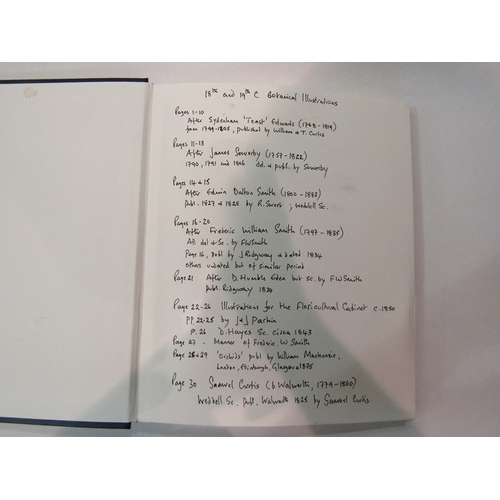 18th and 19th C Botanical Illustrations
Pages 1-10
After Sydenham 'Teast' Edwards (1768-1819)
from 1799-1805, published by William & T. Curtis
Pages 11-13
After James Sowerby (1757-1822)
1790, 1791 and 1806 del. & publ. by Sowerby
Pages 14 & 15
After Edwin Dalton Smith (1800-1883)
Publ. 1827 & 1828 by R. Sweet; Weddell Sc.
Pages 16-20
After Frederic William Smith (1797-1835)
All del & Sc. by FW Smith
Page 16, publ by J Ridgway & dated 1834
others undated but of similar period
Page 21 After D. Humble Eden but sc. by FW Smith
publ. Ridgway 1834
Page 22-26 Illustrations for the Floricultural Cabinet c. 1850
PP. 22-25 by J & J Parkin
P. 26 D. Hayes Sc. circa 1843
Page 27 - Manner of Frederic. W. Smith
Page 28 & 29 'Orchids' publ by William Mackenzie,
London, Edinburgh, Glasgow 1875
Page 30 Samuel Curtis (b Walworth, 1779-1860)
Weddell Sc, Publ, Walworth 1825 by Samuel Curtis